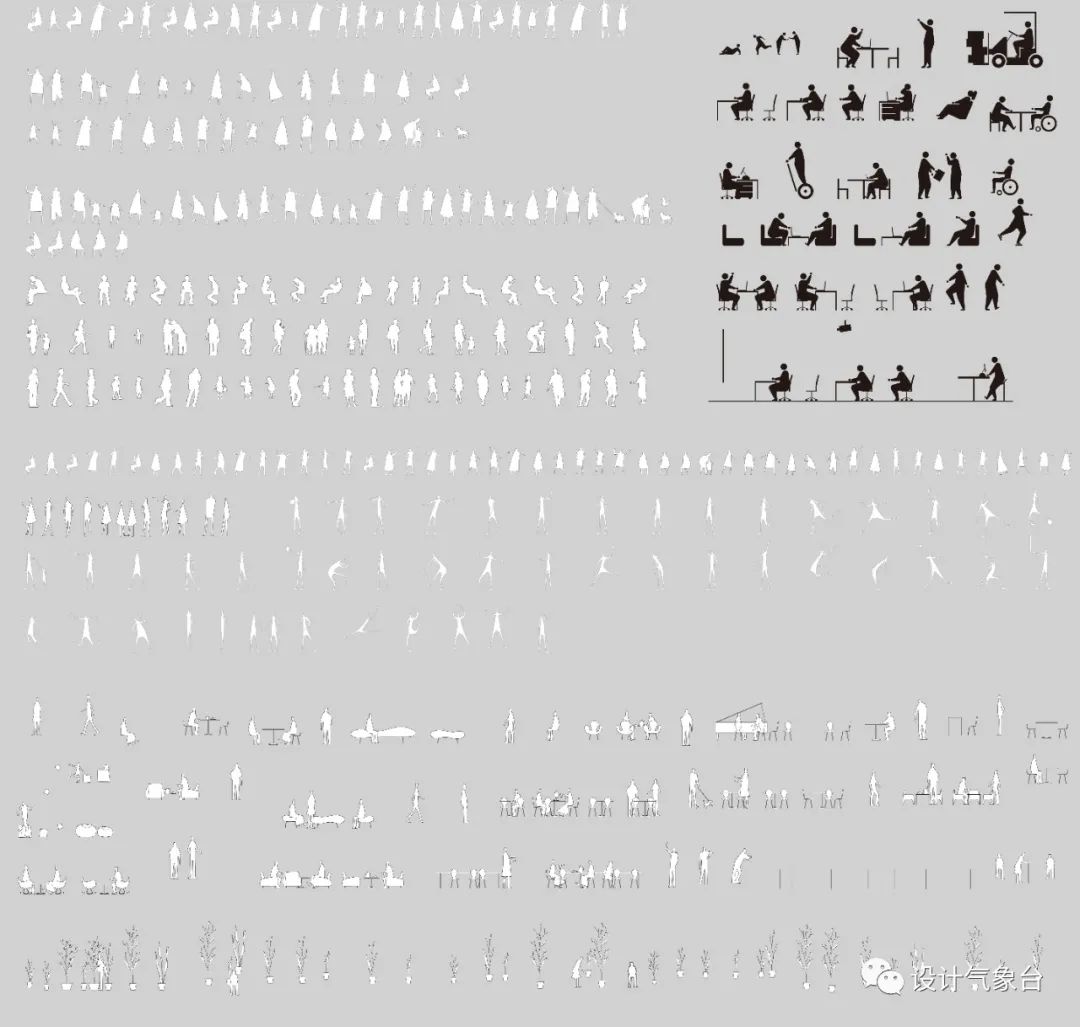 设计气象台